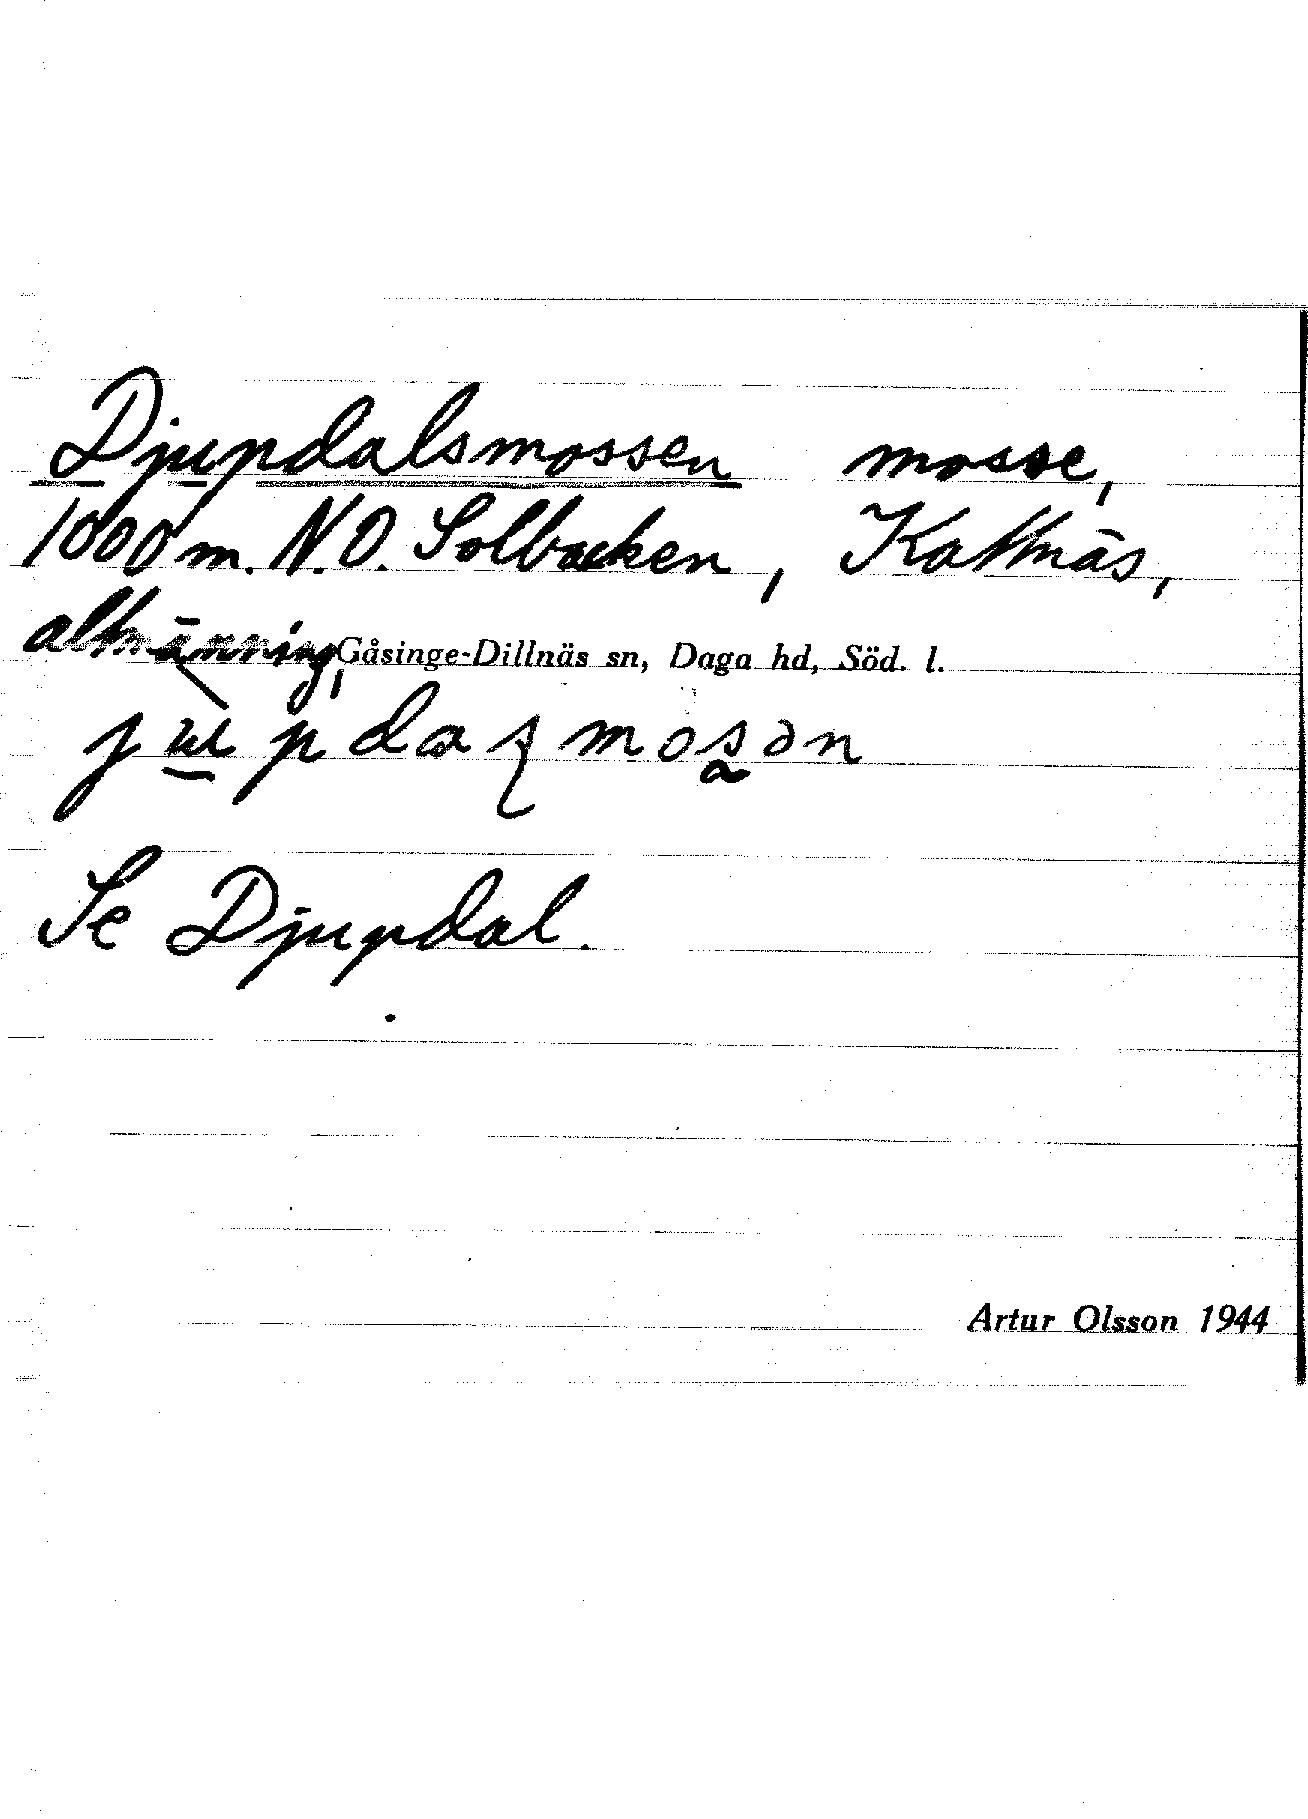 Djupdalsmossen mosse,
1000 m. N.O. Solbacken, Kattnäs,
allmänning, Gåsinge-Dillnäs sn, Daga hd, Söd. l.
Se Djupdal.
Artur Olsson 1944